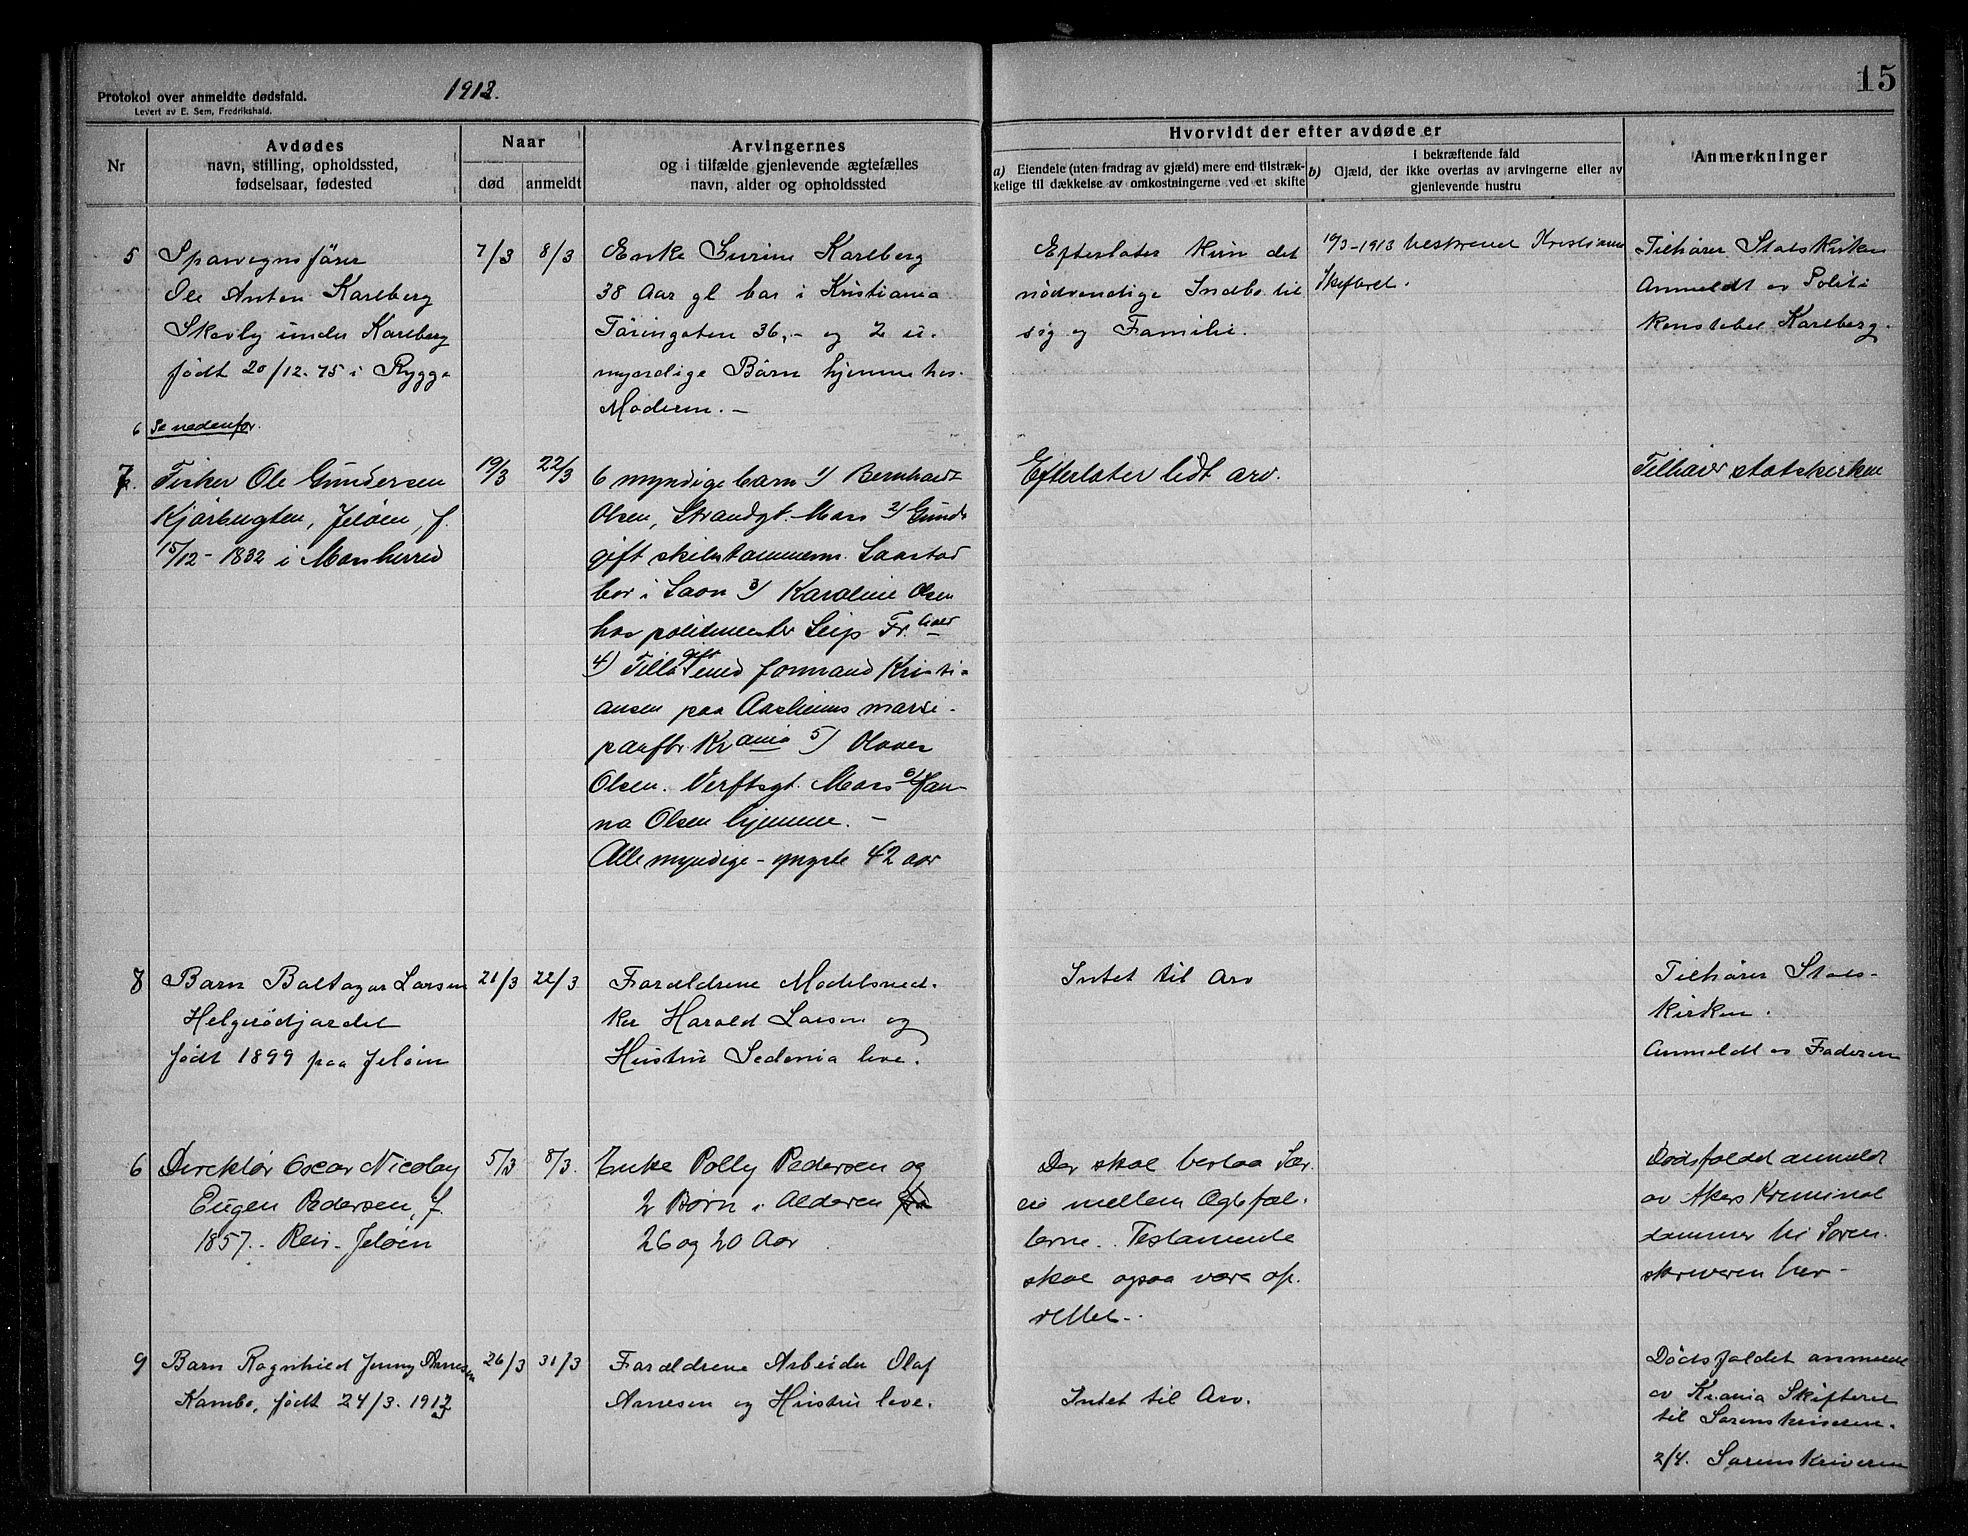 Protokol over anmeldte dødsfald.
Levert av E. Sem, Fredrikshald.
1913.
15
Nr
Avdødes
navn, stilling, opholdssted,
fødselsaar, fødested
Naar
død
anmeldt
Arvingernes
og i tilfælde gjenlevende ægtefælles
navn, alder og opholdssted
Hvorvidt der efter avdøde er
a) Eiendele (uten fradrag av gjæld) mere end tilstræk-
kelige til dækkelse av omkostningerne ved et skifte
I bekræftende fald
b) Gjæld, der ikke overtas av arvingerne eller av
gjenlevende hustru
Anmerkninger
5
Sporvognsfører
Ole Anton Karlberg
Skovly under Karlberg
født 20/12-75 i Rygge
7/3
8/3
Enke Gurine Karlberg
38 Aar gl bor i Kristiania
36,- og 2 u-
myndige Børn hjemme hos
Moderen. -
Efterlater kun det
nødvendige Indbo til
sig og Familie.
19/3-1913 Kristiania
Skifteret.
Tilhører Statskirken
Anmeldt av Politi
konstabel Karlberg.
6 Se nedenfor.
7.
Fisker Ole Gundersen
Kjørbugten, Jeløen, f.
15/12-1832 i Mossherred
19/3
22/3
6 myndige barn 1) Bernhard
Olsen, Strandgt. Moss 2) Gunda
gift Saastad
bor i Saon 3) Karoline Olsen
hos politimester Seip Fr.hald
4) Tilla gift med formand Kristi-
ansen paa Aasheims marsi-
panfbr. Krania 5) Olaves
Olsen. Verftsgt. Moss 6) Jan-
na Olsen hjemme. -
Alle myndige - yngste 42 aar
Efterlater lidt arv.
Tilhører statskirken
8
Barn Baltazar Larsen
Helgerødjordet
født 1899 paa Jeløen
21/3
22/3
Forældrene Modelsned-
ker Harald Larsen og
Hustru Sedenia leve.
Intet til Arv
Tilhører Stats-
kirken.
Anmeldt av Faderen
6
Direktør Oscar Nicolay
Eugen Pedersen, f.
1857. Reir - Jeløen
5/3
8/3.
Enke Polly Pedersen og
2 Børn i Alderen
26 og 20 Aar
Der skal bestaa Sær-
eie mellem Ægtefæl-
lerne. Testamente
skal ogsaa være op-
rettet.
Dødsfaldet anmeldt
av Akers Kriminal
dommer til Soren-
skriveren her -
9
Barn Ragnhild Jenny Arnesen
Kambo, født 24/3. 1913
26/3
31/3
Forældrene Arbeider Olaf
Arnesen og Hustru leve.
Intet til Arv.
Dødsfaldet anmeldt
av Krania Skifteret
til Sorenskriveren.
2/4. Sorenskriveren